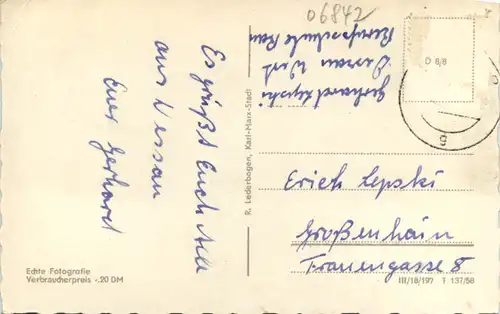 06842
Gerhard Lepski
Dessau West
Berufsschule Bau
D 8/8
Es grüßt Euch Alle
aus Dessau
Euer Gerhard
R. Lederbogen, Karl-Marx-Stadt
Erich Lepski
Großenhain
Frauengasse 8
Echte Fotografie
Verbraucherpreis -.20 DM
III/18/197 T 137/58